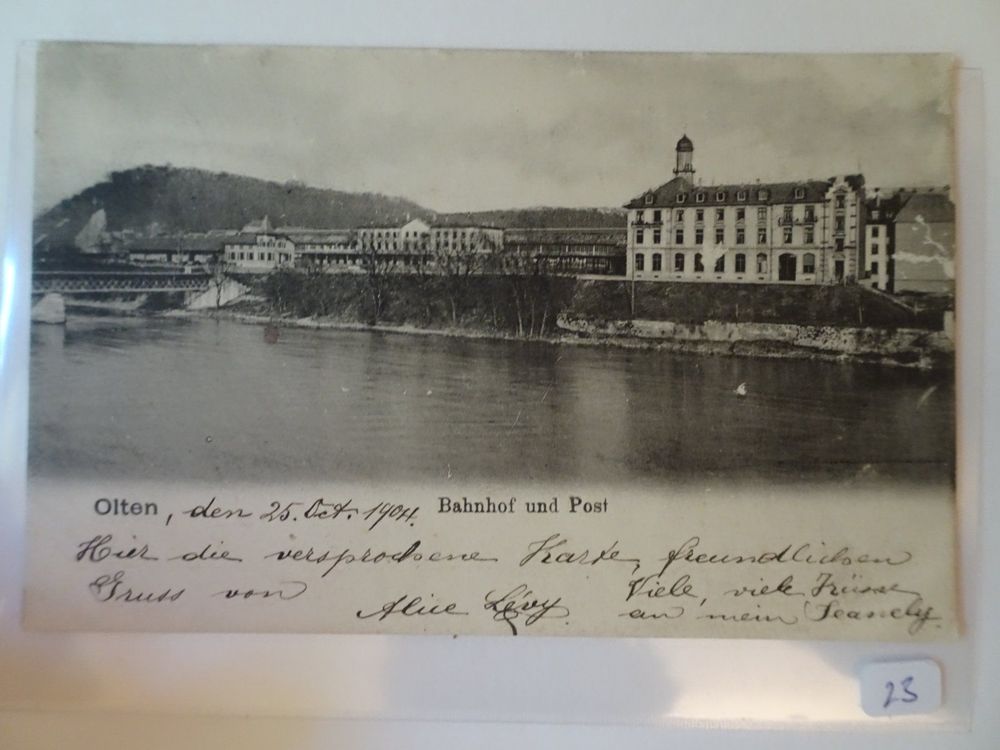 Olten, den 25. Oct. 1904. Bahnhof und Post
Hier die versprochene Karte, freundlichen
Gruss von
Alice Lévy. Viele, viele Küsse
an mein
23